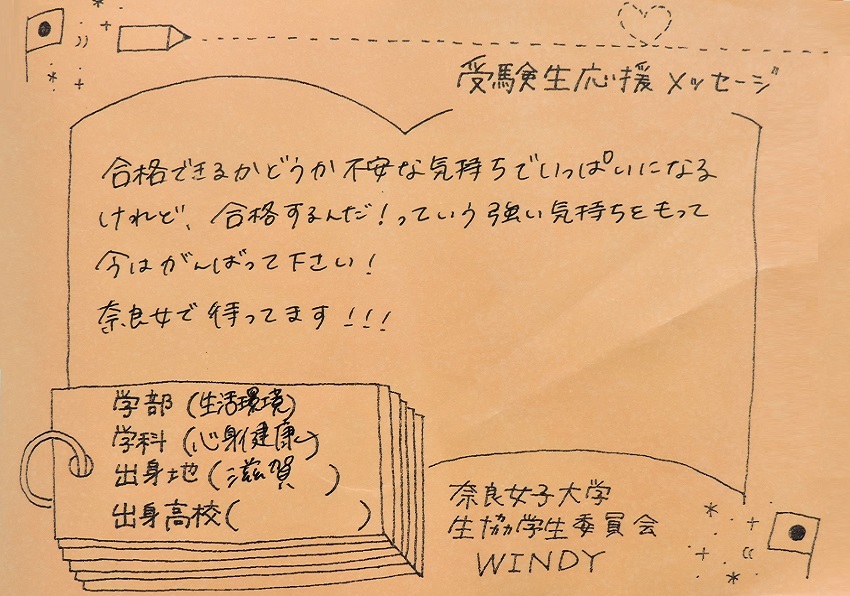 受験生応援メッセージ
合格できるかどうか不安な気持ちでいっぱいになる
けれど、合格するんだ!っていう強い気持ちをもって
今はがんばって下さい!
奈良女で待ってます!!!
学部(生活環境)
学科(心身健康)
出身地(滋賀)
出身高校( )
奈良女子大学
生協学生委員会
WINDY